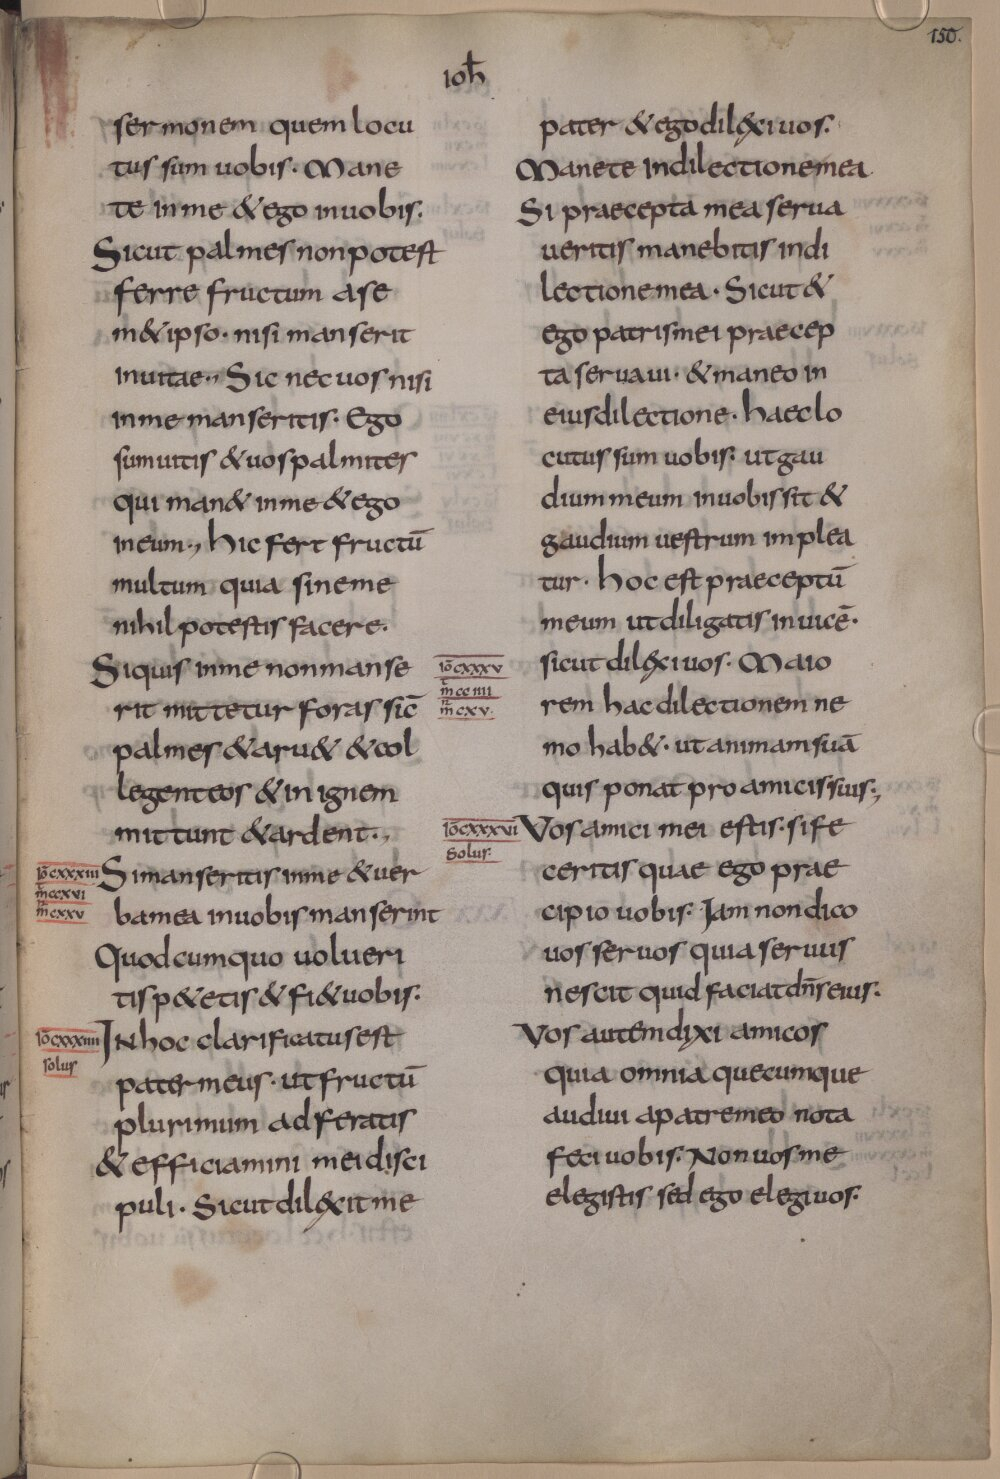 150.
ioh̄
sermonem quem locu
tus sum uobis· Mane
te in me & ego in uobis.
Sicut palmes non potest
ferre fructum a se
m&ipso· nisi manserit
in uitae·, Sic nec uos nisi
in me manseritis· Ego
sum uitis & uos palmites
qui man& in me & ego
in eum·, hic fert fructū
multum quia sine me
nihil potestis facere·
Si quis in me non manse
rit mittetur foras sic̄
palmes & aru& & col
legent eos & in ignem
mittunt & ardent·,
iō cxxxiii
m̄ ccxvi
m̄ cxxv
Si manseritis in me & uer
ba mea in uobis manserint
Quodcumquo uolueri
tis p&etis & fi& uobis·
iō cxxxiiii
solus
In hoc clarificatus est
pater meus· ut fructū
plurimum adferatis
& efficiamini mei disci
puli· Sicut dilexit me
pater & ego dilexi uos·
Manete in dilectione mea
Si praecepta mea serua
ueritis manebitis in di
lectione mea· Sicut &
ego patris mei praecep
ta seruaui· & maneo in
eius dilectione· haec lo
cutus sum uobis· ut gau
dium meum in uobis sit &
gaudium uestrum implea
tur· hoc est praeceptū
meum ut diligatis inuicē·
iō cxxxv
m̄ cc iiii
m̄ cxv·
sicut dilexi uos· Maio
rem hac dilectionem ne
mo hab&· ut animam suā
quis ponat pro amicis suis·,
iō cxxxvi
solus·
Vos amici mei estis· si fe
ceritis quae ego prae
cipio uobis· Iam non dico
uos seruos quia seruus
nescit quid faciat dn̄s eius·
Vos autem dixi amicos
quia omnia quecumque
audiui a patre meo nota
feci uobis· Non uos me
elegistis sed ego elegi uos·